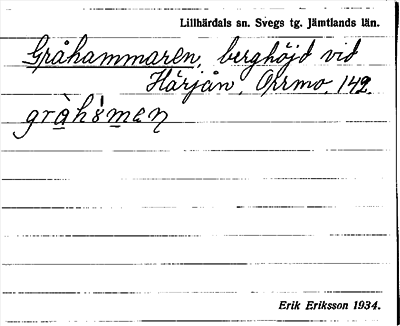 Lillhärdals sn. Svegs tg. Jämtlands län.
Gråhammaren, berghöjd vid
Härjån, Orrmo. 142.
Erik Eriksson 1934.